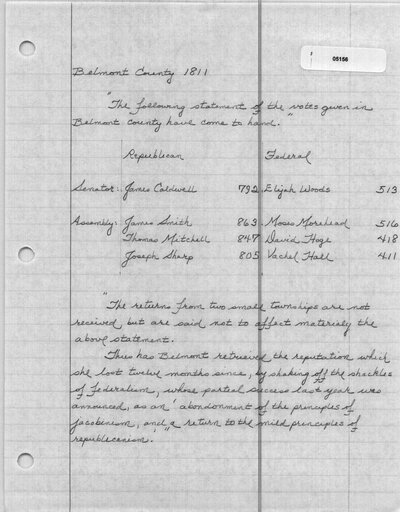 05156
Belmont County 1811
"The following statement of the votes given in
Belmont County have come to hand."
Republican Federal
Senator: James Caldwell 792 Elijah Woods 513
Assembly: James Smith 863 Moses Morehead 516
Thomas Mitchell 847 David Hoge 418
Joseph Sharp 805 Vachel Hall 411
"The returns from two small townships are not
received but are said not to affect materialy the
above statement.
Thus has Belmont retrieved the reputation which
she lost twelve months since, by shaking off the shackles
of federalism, whose partial success last year was
announced, as an 'abondonment of the principles of
jacobinism, and a return to the mild principles of
republicanism.'"